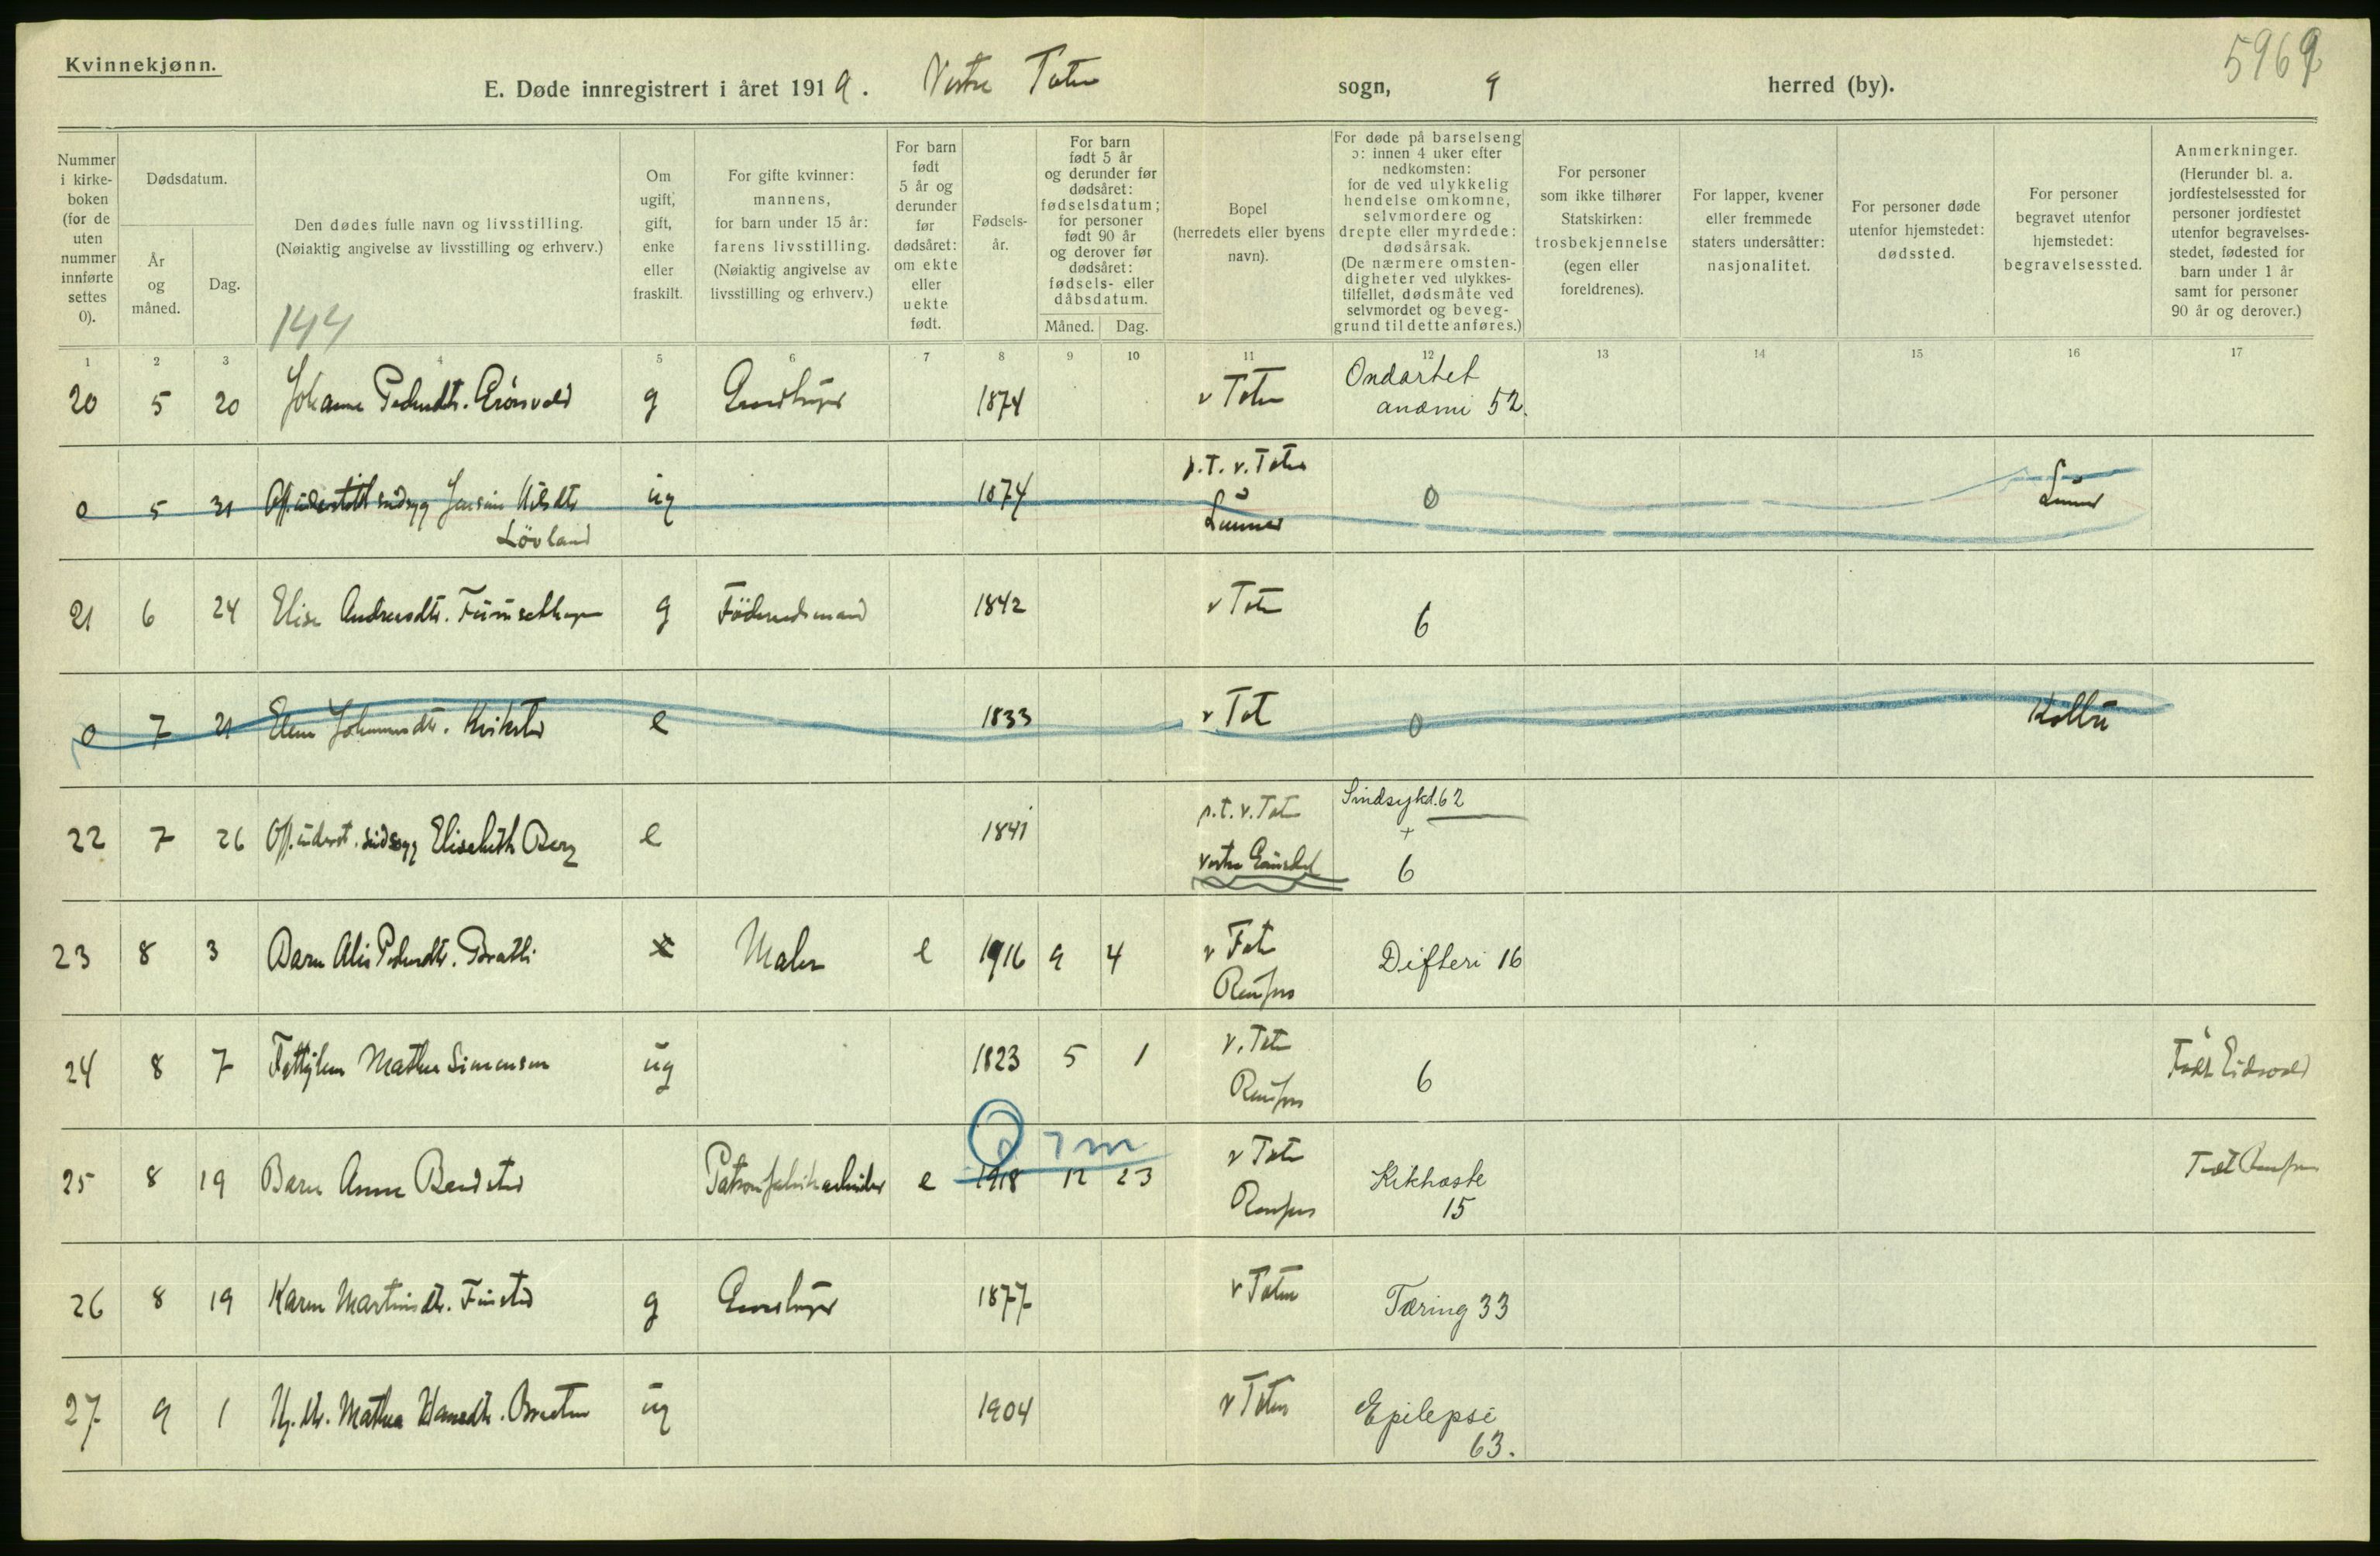 Kvinnekjønn.
5969
E. Døde innregistrert i året 1919. Vestre Toten sogn, 9 herred (by).
Nummer i kirke-boken (for de uten nummer innførte settes 0).
Dødsdatum.
År og måned.
Dag.
Den dødes fulle navn og livsstilling.
(Nøiaktig angivelse av livsstilling og erhverv.)
144
Om ugift, gift, enke eller fraskilt.
For gifte kvinner: mannens, for barn under 15 år: farens livsstilling. (Nøiaktig angivelse av livsstilling og erhverv.)
For barn født 5 år og derunder før dødsåret: om ekte eller uekte født.
Fødsels-år.
For barn født 5 år og derunder før dødsåret: fødselsdatum; for personer født 90 år og derover før dødsåret: fødsels- eller dåbsdatum.
Måned. Dag.
Bopel (herredets eller byens navn).
For døde på barselseng ɔ: innen 4 uker efter nedkomsten: for de ved ulykkelig hendelse omkomne, selvmordere og drepte eller myrdede: dødsårsak. (De nærmere omsten-digheter ved ulykkes-tilfellet, dødsmåte ved selvmordet og beveg-grund til dette anføres.)
For personer som ikke tilhører Statskirken: trosbekjennelse (egen eller foreldrenes).
For lapper, kvener eller fremmede staters undersåtter: nasjonalitet.
For personer døde utenfor hjemstedet: dødssted.
For personer begravet utenfor hjemstedet: begravelsessted.
Anmerkninger. (Herunder bl. a. jordfestelsessted for personer jordfestet utenfor begravelses-stedet, fødested for barn under 1 år samt for personer 90 år og derover.)
1 2 3 4 5 6 7 8 9 10 11 12 13 14 15 16 17
20 5 20 Johanne Pedersdtr. g 1874 v Toten Ondartet anæmi 52.
0 5 31 Jensine Nilsdtr Løvland ug 1874 p.t. v. Toten Lunner 0 Lunner
21 6 24 Elise Andreasdtr. g Føderaadsmand 1842 v Toten 6
0 7 21 Johannesdtr. e 1833 v Tot 0 Kolbu
22 7 26 Off. underst. sindssyg Elisabeth Berg e 1841 p.t. v. Toten Vestre Sindsykd. 62 + 6
23 8 3 Barn Pedersdtr. Bratli x Maler e 1916 9 4 v Tot Raufoss Difteri 16
24 8 7 Mathea Simensen ug 1823 5 1 v. Toten Raufoss 6 Født Eidsvold
25 8 19 Barn Anna Patronfabrikarbeider e 1918 12 23 0 7 m v Toten Raufoss Kikhoste 15 Født Raufoss
26 8 19 Karen Martinsdtr. Finstad g 1877 v Toten Tæring 33
27 9 1 Mathea Hansdtr. Braaten ug 1904 v Toten Epilepsi 63.